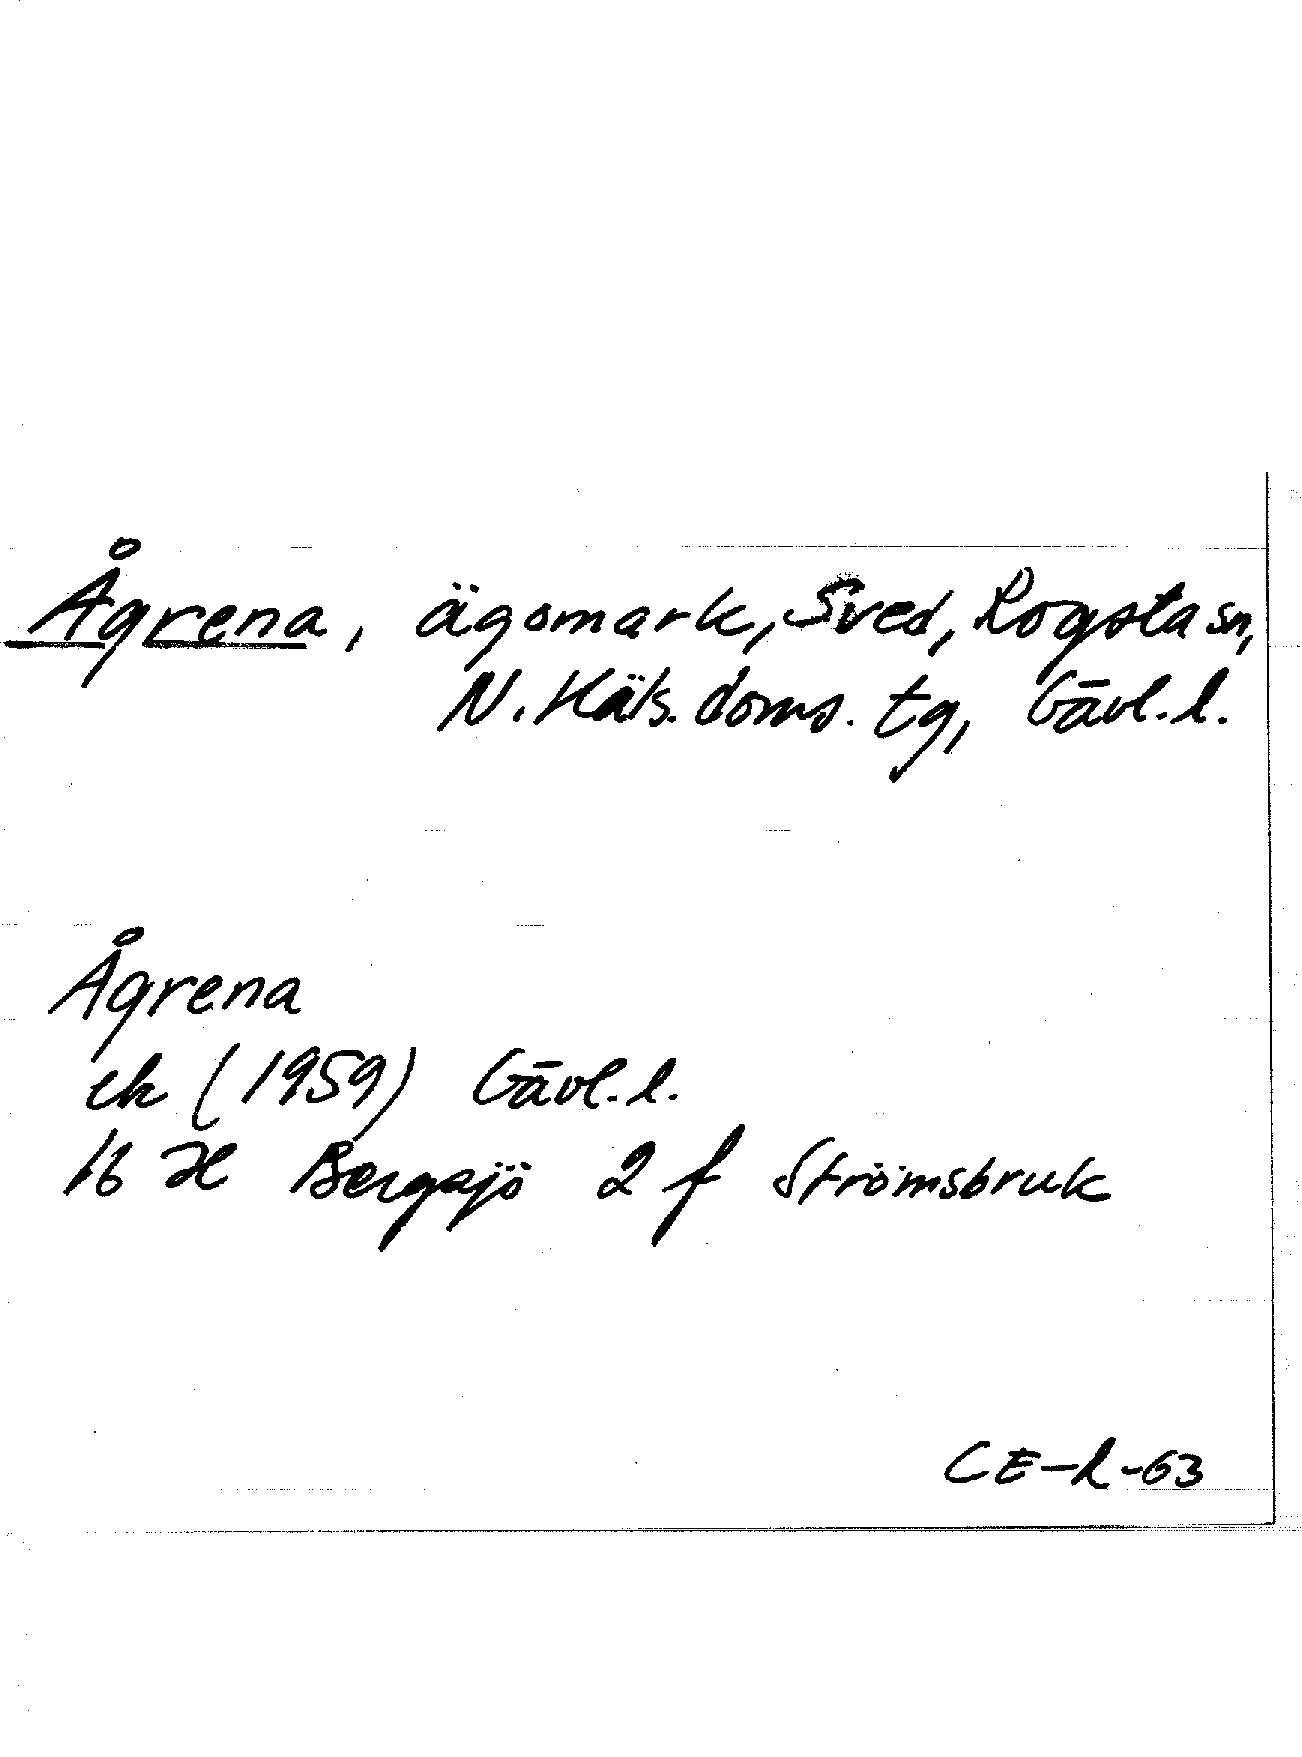 Ågrena, ägomark, Sved, Rogsta sn,
N. Häls. doms. tg, Gävl. l.
Ågrena
ek (1959) Gävl. l.
16 H Bergsjö 2 f Strömsbruk
CE-R-63